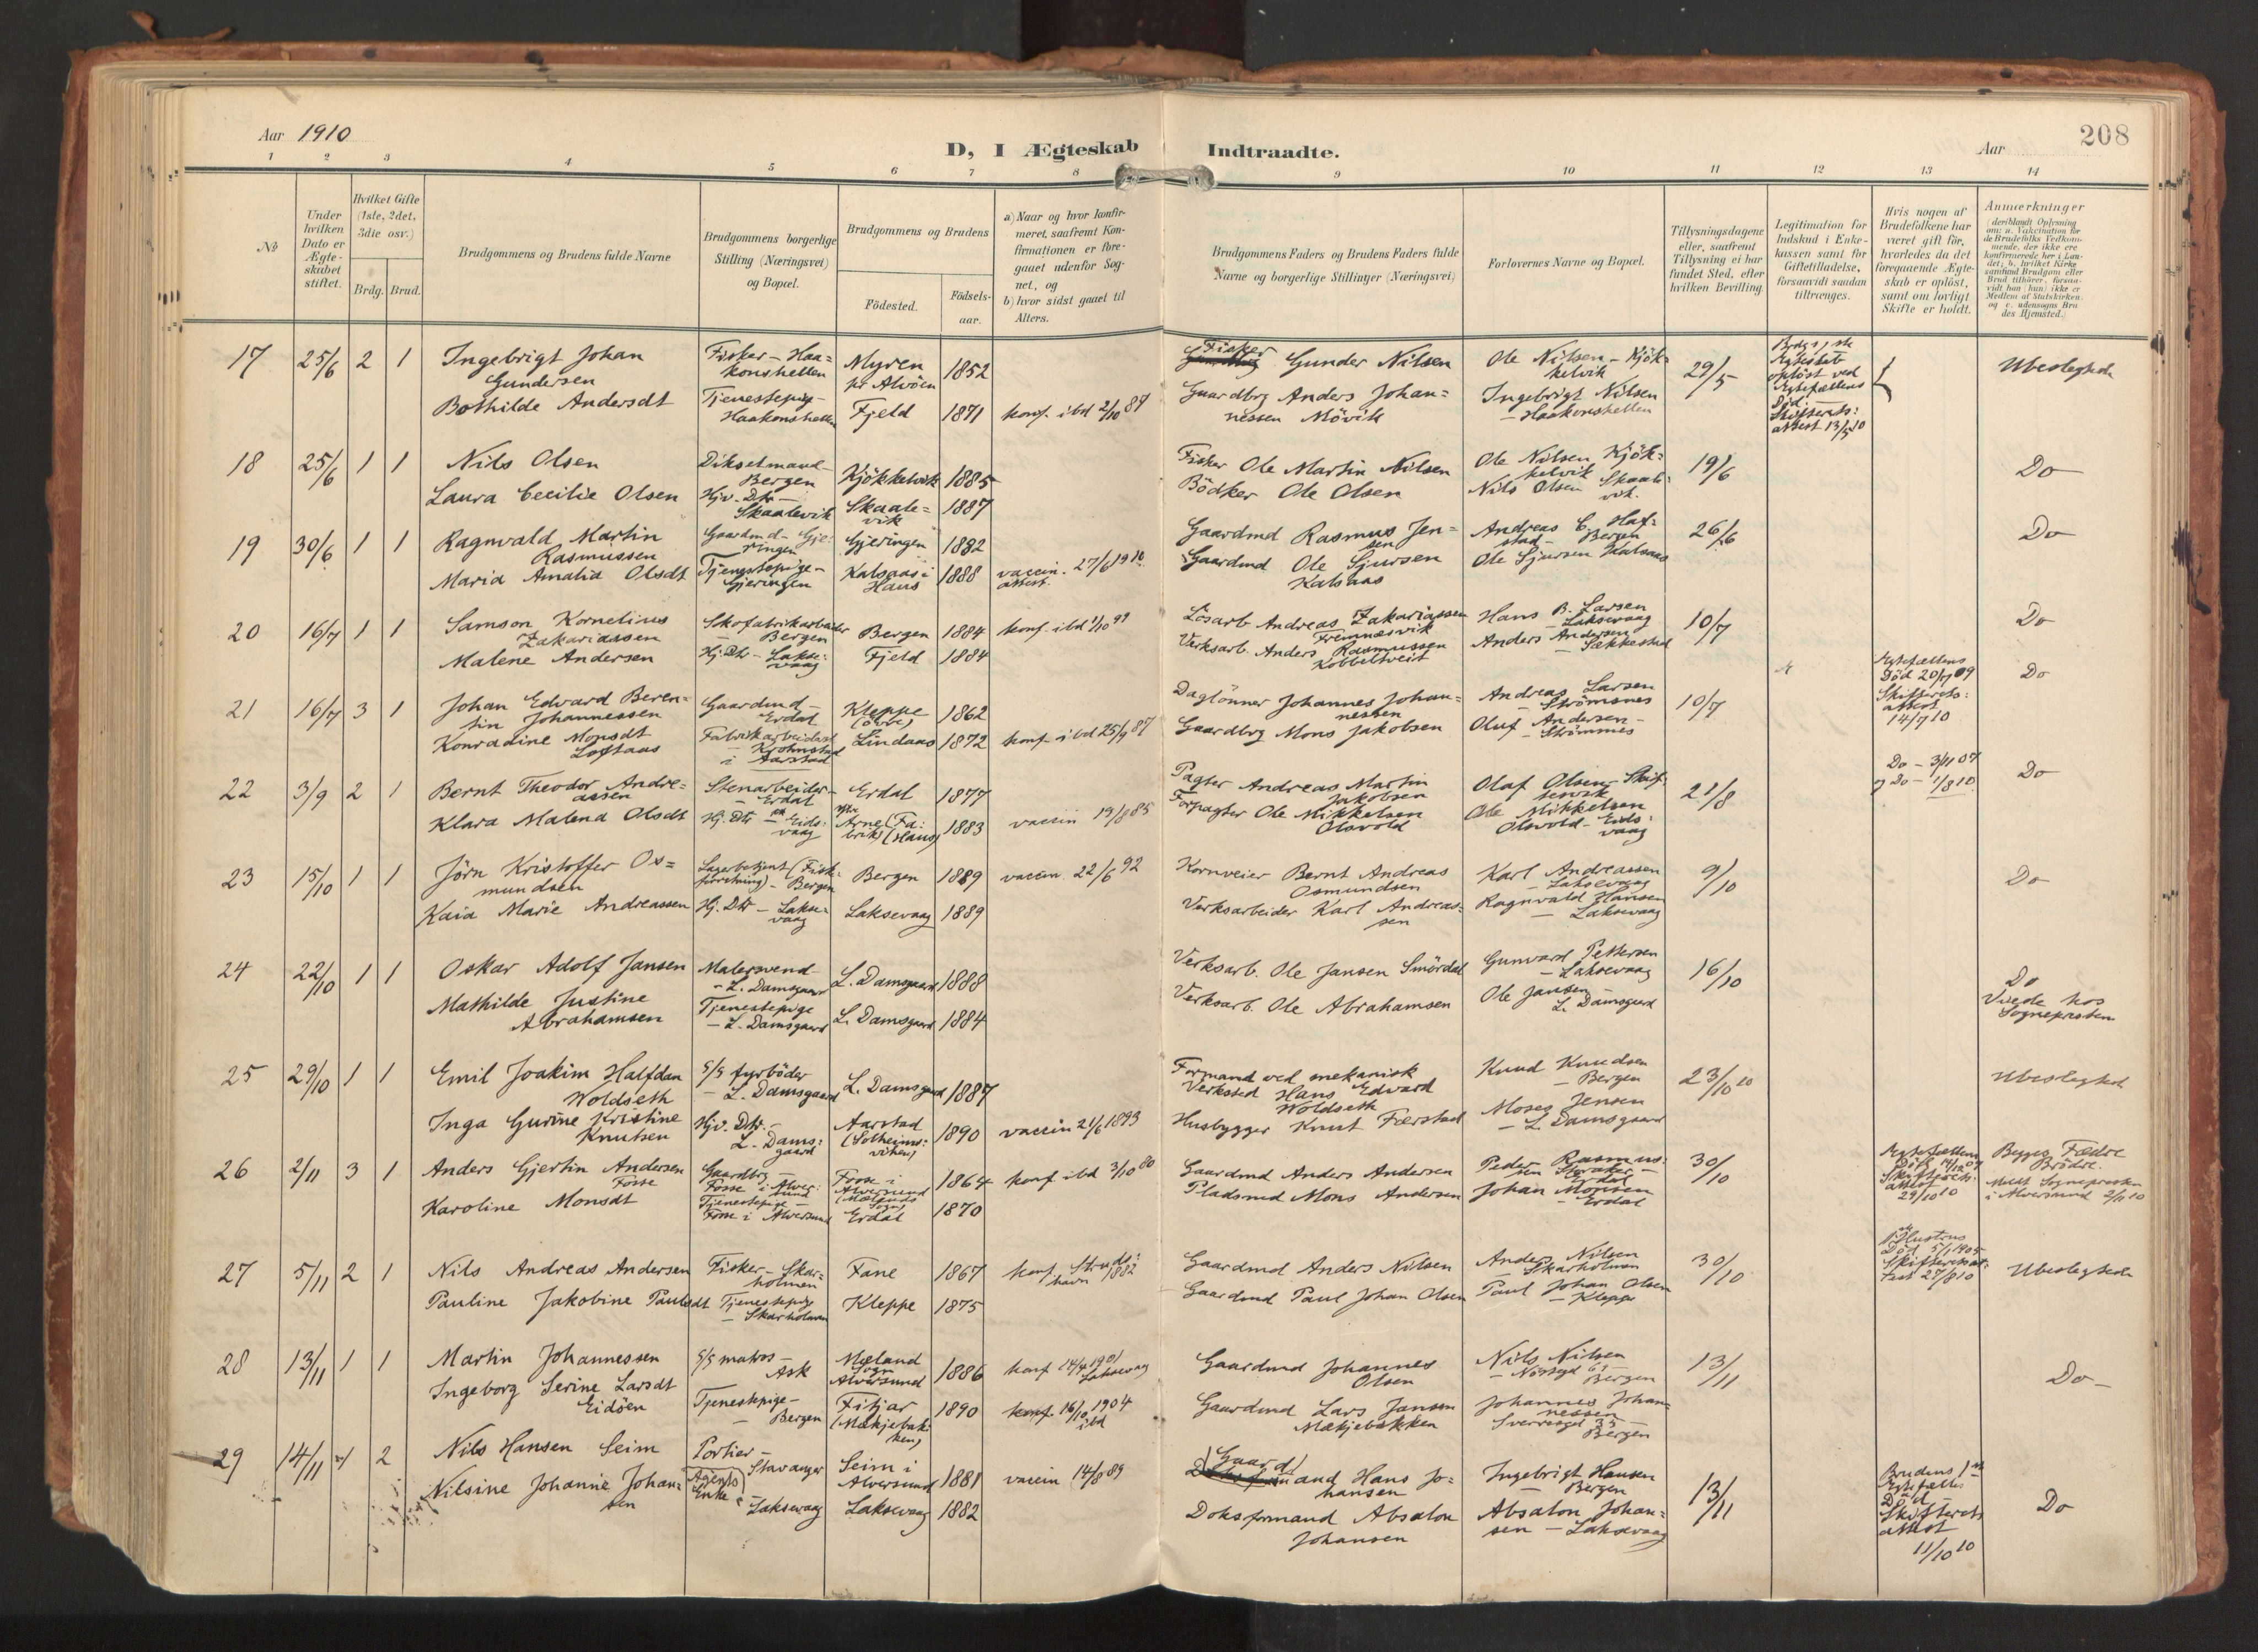 Aar 1910
D, I Ægteskab Indtraadte.
Aar
208
1 2 3 4 5 6 7 8 9 10 11 12 13 14
№
Under hvilken Dato er Ægteskabet stiftet.
Hvilket Gifte (1ste, 2det, 3die osv.)
Brdg. Brud.
Brudgommens og Brudens fulde Navne
Brudgommens borgerlige Stilling (Næringsvei) og Bopæl.
Brudgommens og Brudens
Födested.
Födsels-aar.
a) Naar og hvor konfirmeret, saafremt Konfirmationen er foregaaet udenfor Sognet, og
b) hvor sidst gaaet til Alters.
Brudgommens Faders og Brudens Faders fulde Navne og borgerlige Stillinger (Næringsvei)
Forlovernes Navne og Bopæl.
Tillysningsdagene eller, saafremt Tillysning ei har fundet Sted, efter hvilken Bevilling.
Legitimation for Indskud i Enkekassen samt for Giftetilladelse, forsaavidt saadan tiltrænges.
Hvis nogen af Brudefolkene har været gift för, hvorledes da det foregaaende Ægteskab er oplöst, samt om lovligt Skifte er holdt.
Anmærkninger
(deriblandt Oplysning om: a. Vakcination for de Brudefolks Vedkommende, der ikke ere konfirmerede her i Landet; b. hvilket Kirkesamfund Brudgom eller Brud tilhörer, forsaavidt han (hun) ikke er Medlem af Statskirken, og c. udensogns Brudes Hjemsted.)
17 25/6 2 1
Ingebrigt Johan Gundersen
Fisker - Haakonshellen
Myren pr Alvöen 1852
Fisker Gunder Nilsen
Ole Nilsen - Kjökkelvik
29/5
Brdgs. 1ste Egteskab oplöst ved Egtefællens Död. Skifterets: attest 13/5 10
Ubeslegtede
Bothilde Andersdt
Tjenestepige - Haakonshellen
Fjeld 1871
konf. ibd 2/10 87
Gaardbrg Anders Johannessen Mövik
Ingebrigt Nilsen - Haakonshellen
18 25/6 1 1
Nils Olsen
Dikselmand - Bergen
Kjökkelvik 1885
Fisker Ole Martin Nilsen
Ole Nilsen Kjökkelvik
19/6
Do
Laura Cecilie Olsen
Hjv. Dtr - Skaalevik
Skaalevik 1887
Bödker Ole Olsen
Nils Olsen Skaalevik.
19 30/6 1 1
Ragnvald Martin Rasmussen
Gaardmd - Gjeringen
Gjeringen 1882
Gaardmd Rasmus Jensen
Andreas C. Hafstad - Bergen
26/6
Do
Maria Amalia Olsdt
Tjenestepige - Gjeringen
Kalsaas i Haus 1888
vaccin. attest. 27/6 1910
Gaardmd Ole Sjursen Kalsaas
Ole Sjursen Kalsaas
20 16/7 1 1
Samson Kornelius Zakariassen
Skofabrikarbeider - Bergen
Bergen 1884
konf. ibd 1/10 99
Lösarb Andreas Zakariassen Fremnesvik
Hans B. Larsen - Laksevaag
10/7
Do
Malene Andersen
Hj. Dtr - Laksevaag
Fjeld 1884
Verksarb. Anders Rasmussen Kobbeltveit
Anders Andersen - Sækkestad
21 16/7 3 1
Johan Edvard Berentin Johannessen
Gaardmd - Erdal
Kleppe 1862
Daglönner Johannes Johannessen
Andreas Larsen - Strömsnes
10/7
Egtefællens Död 20/7 09 Skifterets: attest 14/7 10
Do
Konradine Monsdt Loftaas
Fabrikarbeiderske - Krohnstad i Aarstad
Lindaas 1872
konf. ibd 25/9 87
Gaardbrg Mons Jakobsen
Oluf Andersen - Strömsnes
22 3/9 2 1
Bernt Theodor Andreassen
Stenarbeider - Erdal
Erdal 1877
Pagter Andreas Martin Jakobsen
Olaf Olsen
21/8
Do - 3/11 07 og Do - 1/8 10
Do
Klara Malena Olsdt
Hj. Dtr - Eidsvaag
Arne (Fabrik) (Haus) 1883
vaccin 19/8 85
Forpagter Ole Mikkelsen Olsvold
Ole Mikkelsen Olsvold - Eidsvaag
23 15/10 1 1
Jörn Kristoffer Osmundsen
Lagerbetjent (Fiskforretning) - Bergen
Bergen 1889
vaccin. 22/6 92
Kornveier Bernt Andreas Osmundsen
Karl Andreassen - Laksevaag
9/10
Do
Kaia Marie Andreassen
Hj. Dtr - Laksevaag
Laksevaag 1889
Verksarbeider Karl Andreassen
Ragnvald Hansen - Laksevaag
24 22/10 1 1
Oskar Adolf Jansen
Malersvend - L. Damsgaard
L. Damsgaard 1888
Verksarb. Ole Jansen Smördal
Gunvard Pettersen - Laksevaag
16/10
Do
Viede hos Sognepresten
Mathilde Justine Abrahamsen
Tjenestepige - L. Damsgaard
L. Damsgaard 1884
Verksarb. Ole Abrahamsen
Ole Jansen - L. Damsgaard
25 29/10 1 1
Emil Joakim Halfdan Woldseth
S/S fyrböder - L. Damsgaard
L. Damsgaard 1887
Formand ved mekanisk Verksted Hans Edvard Woldseth
Knud Knudsen - Bergen
23/10 10
Ubeslegted
Inga Gurine Kristine Knutsen
Hjv. Dtr. - L. Damsgaard
Aarstad (Solheimsviken) 1890
vaccin 21/6 1893
Husbygger Knut Færstad
Moses Jensen - L. Damsgaard
26 2/11 3 1
Anders Gjertin Andersen Fosse
Gaardbrg - Fosse i Alversund
Fosse i Alversund 1864
konf ibd 3/10 80
Gaardmd Anders Andersen
Peder Rasmussen - Erdal
30/10
Egtefællens Död 14/12 07 Skifterets: attest 29/10 10
Begges Fædre Brödre. Meldt Sognepresten i Alversund 2/11 10
Karoline Monsdt
Tjenestepige - Fosse i Alversund
Erdal 1870
Pladsmd Mons Andersen
Johan Monsen - Erdal
27 5/11 2 1
Nils Andreas Andersen
Fisker - Skarholmen
Fane 1867
konf. Strudshavn 1882
Gaardmd Anders Nilsen
Anders Nilsen - Skarholmen
30/10
Hustrus Död 5/1 1905 Skifteretsattest 27/8 10
Ubeslegtede
Pauline Jakobine Paulsdt
Tjenestepige - Skarholmen
Kleppe 1875
Gaardmd Paul Johan Olsen
Paul Johan Olsen - Kleppe
28 13/11 1 1
Martin Johannessen
S/S matros - Ask
Mæland Sogn Alversund 1886
konf 14/4 1901 Laksevaag
Gaardmd Johannes Olsen
Nils Nilsen - Bergen
13/11
Do -
Ingeborg Serine Larsdt Eidöen
Tjenestepige - Bergen
Fitjar (Mækjebakken) 1890
konf. 16/10 1904 ibd
Gaardmd Lars Jansen Mækjebakken
Johannes Johannessen Sverresgd 33 - Bergen
29 14/11 1 2
Nils Hansen Seim
Portier - Stavanger
Seim i Alversund 1881
vaccin 14/8 89
(Gaard)mand Hans Johansen
Ingebrigt Hansen - Bergen
13/11
Brudens 1ste Egtefælles Död - Skifterets attest 11/10 10
Do
Nilsine Johanne Johansen
Agents Enke - Laksevaag
Laksevaag 1882
Doksformand Absalon Johansen
Absalon Johansen - Laksevaag